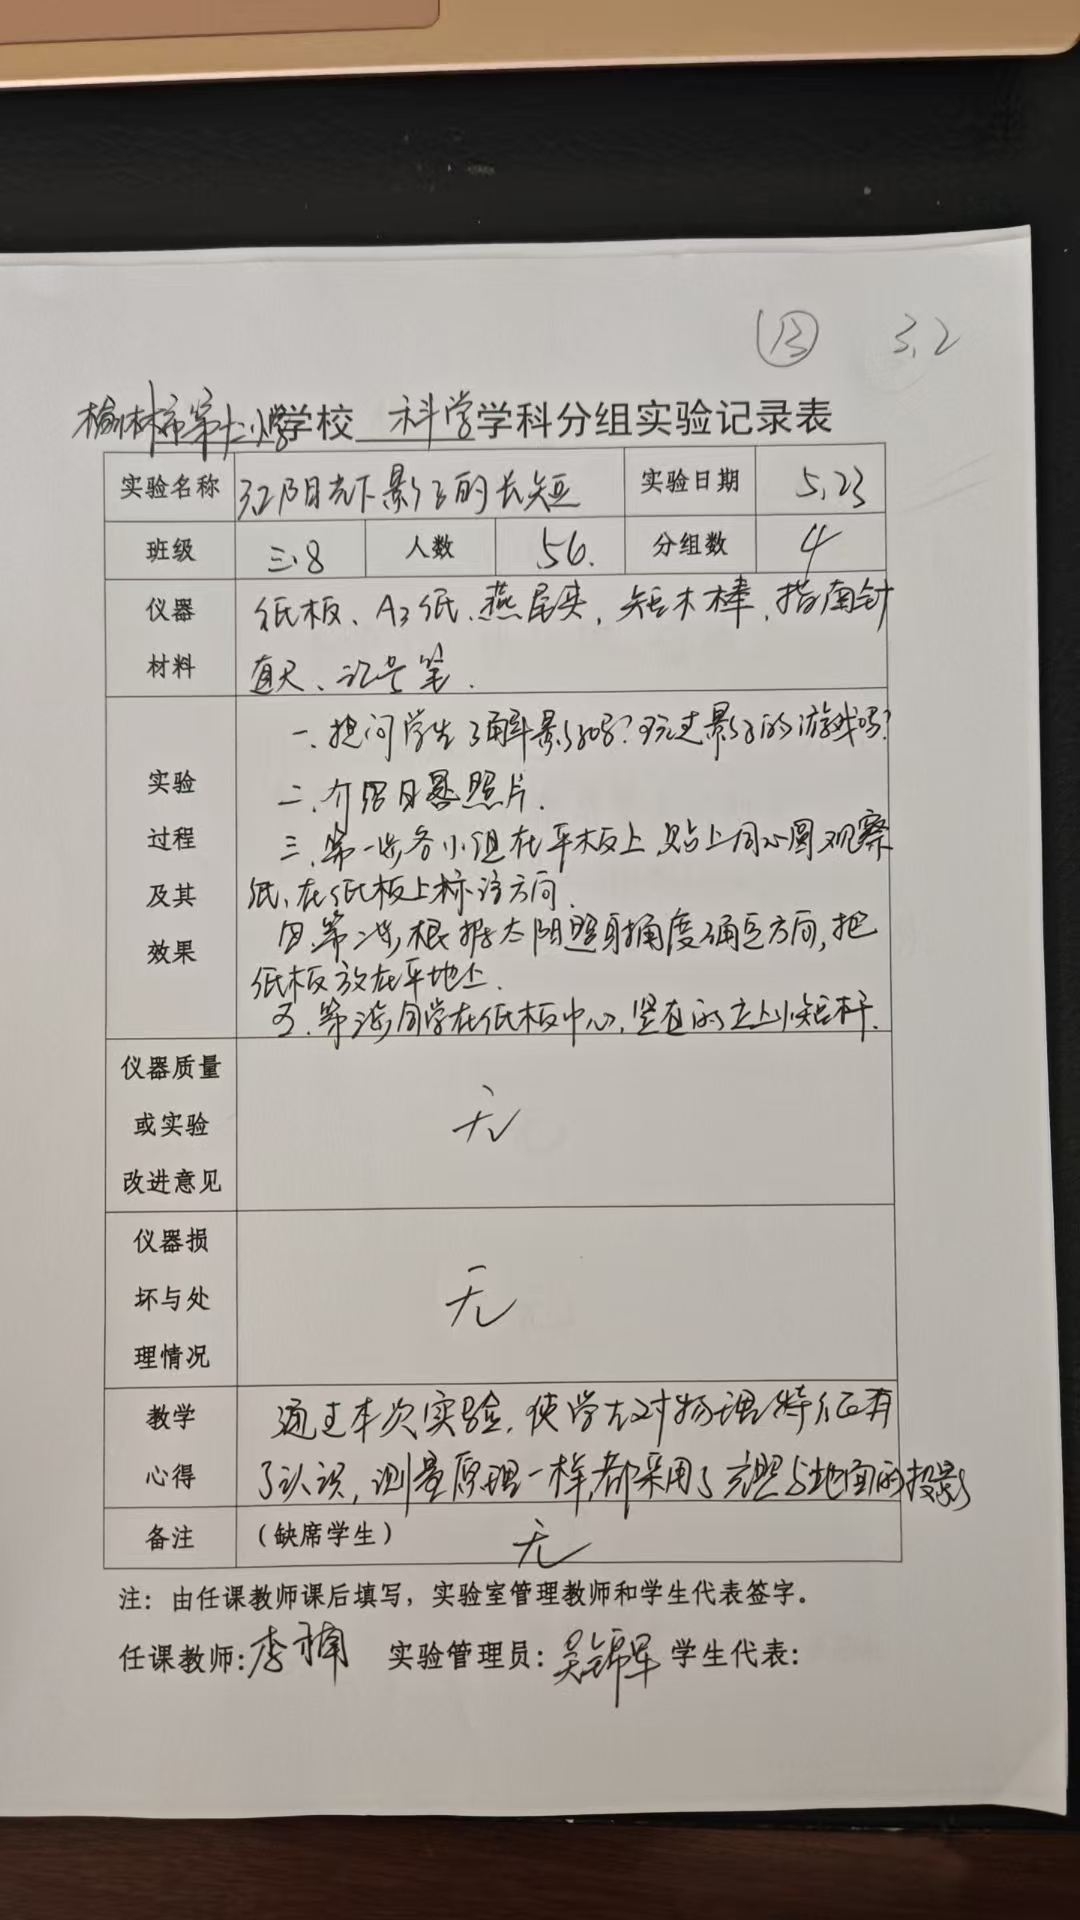 ⑬ 3.2
榆林市第十二小学学校 科学学科分组实验记录表
实验名称 3.2阳光下影子的长短 实验日期 5.23
班级 三.8 人数 56. 分组数 4
仪器 纸板、A3纸、燕尾夹,短木棒、指南针
材料 直尺、记号笔.
一、提问学生了解影子吗?玩过影子的游戏吗?
实验
二、介绍日晷照片.
过程 三、第一步各小组在平板上贴上同心圆观察
及其 纸,在纸板上标注方向.
四、第二步,根据太阳照射角度确定方向,把
效果
纸板放在平地上.
五、第三步同学在纸板中心,竖直的立上小短杆.
仪器质量
或实验 无
改进意见
仪器损
坏与处 无
理情况
教学 通过本次实验,使学生对物理特征有
心得 了认识,测量原理一样,都采用了光照与地面的投影
备注 (缺席学生) 无
注:由任课教师课后填写,实验室管理教师和学生代表签字。
任课教师:李楠 实验管理员:吴锦军 学生代表: